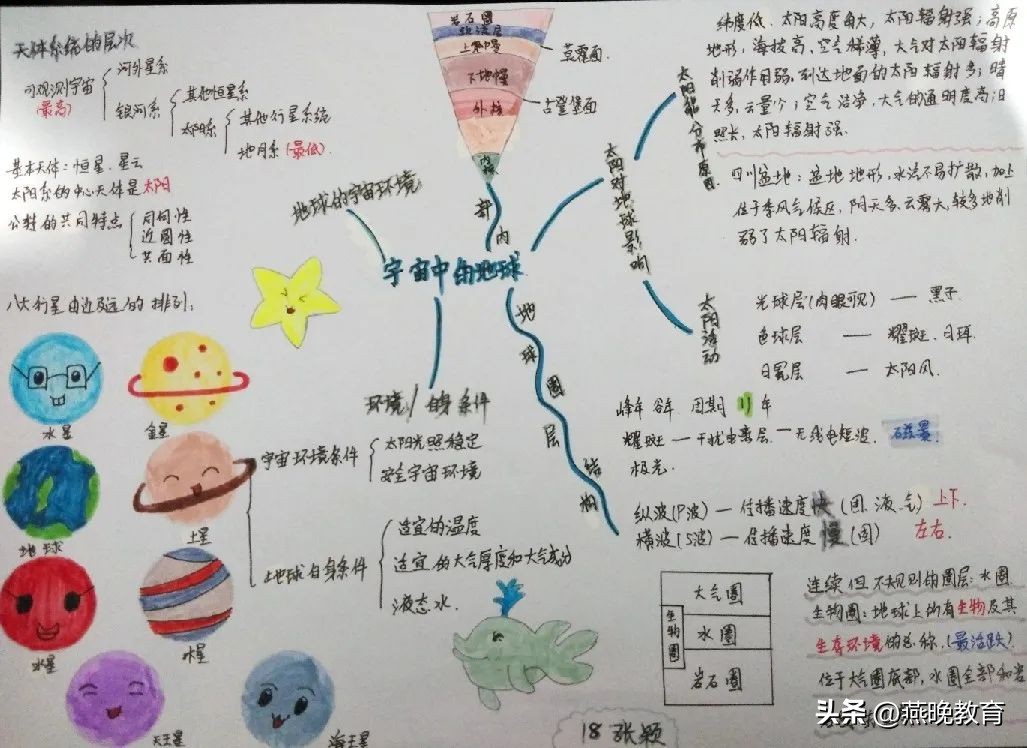 天体系统的层次
可观测宇宙
(最高)
河外星系
银河系
其他恒星系
太阳系
其他行星系统
地月系(最低)
基本天体：恒星、星云
太阳系的中心天体是太阳
公转的共同特点
同向性
近圆性
共面性
八大行星由近及远的排列：
水星
金星
地球
土星
木星
天王星
海王星
地球的宇宙环境
宇宙中的地球
岩石圈
软流层
上地幔
下地幔
外核
内核
莫霍面
古登堡面
内部
太阳对地球影响
太阳能分布原因
纬度低、太阳高度角大，太阳辐射强；高原
地形，海拔高，空气稀薄，大气对太阳辐射
削弱作用弱，到达地面的太阳辐射多；晴
天多，云量少；空气洁净，大气的透明度高；日
照长，太阳辐射强.
四川盆地：盆地地形，水汽不易扩散，加上
位于季风气候区，阴天多、云雾大，较多地削
弱了太阳辐射.
太阳活动
光球层(肉眼可见) — 黑子
色球层 — 耀斑、日珥
日冕层 — 太阳风.
峰年 谷年 周期11年
耀斑—干扰电离层—无线电短波. 磁暴
极光.
地球圈层结构
纵波(P波)—传播速度快(固、液、气) 上下.
横波(S波)—传播速度慢(固) 左右.
大气圈
水圈
岩石圈
生物圈
连续但不规则的圈层：水圈
生物圈：地球上所有生物及其
生存环境的总称.(最活跃)
位于大气圈底部，水圈全部和岩
环境 的条件
宇宙环境条件
太阳光照稳定
安全宇宙环境
地球自身条件
适宜的温度
适宜的大气厚度和大气成分
液态水.
18 张颖
头条 @燕晚教育